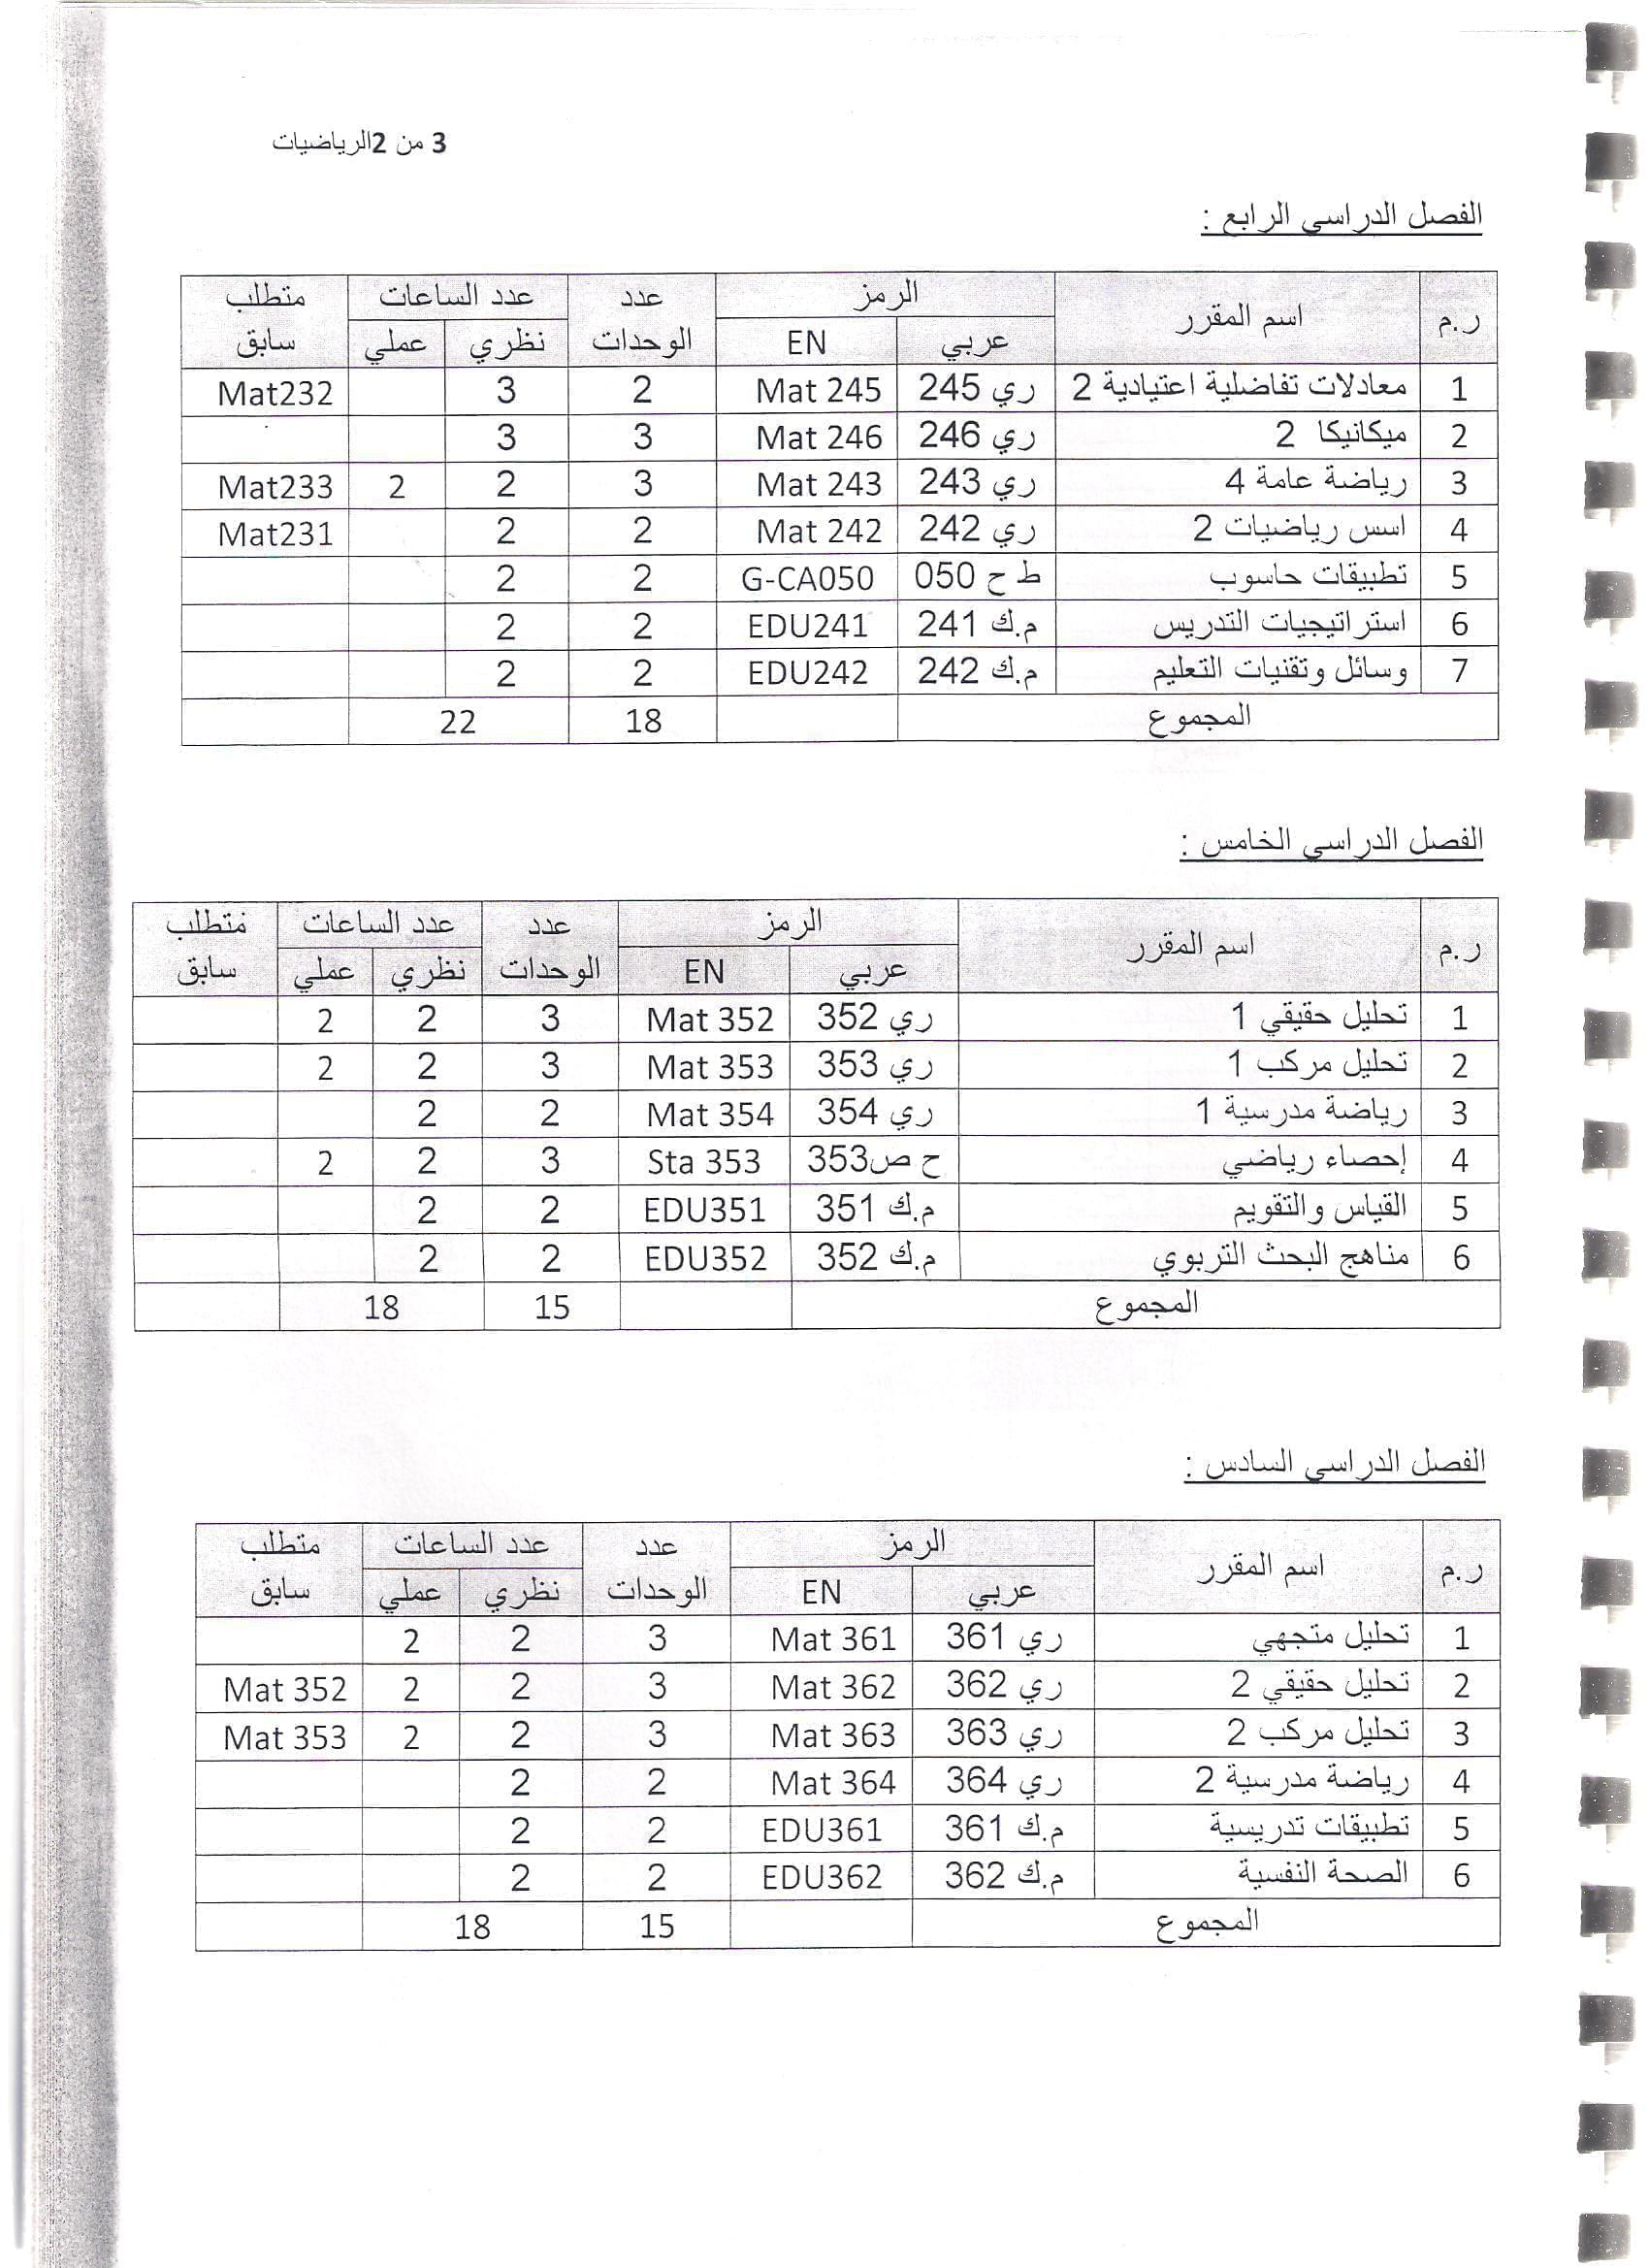 3 من 2الرياضيات
الفصل الدراسي الرابع :
ر.م | اسم المقرر | الرمز | عدد الوحدات | عدد الساعات | متطلب سابق
عربي | EN | نظري | عملي
1 | معادلات تفاضلية اعتيادية 2 | ري 245 | Mat 245 | 2 | 3 | | Mat232
2 | ميكانيكا 2 | ري 246 | Mat 246 | 3 | 3 | |
3 | رياضة عامة 4 | ري 243 | Mat 243 | 3 | 2 | 2 | Mat233
4 | اسس رياضيات 2 | ري 242 | Mat 242 | 2 | 2 | | Mat231
5 | تطبيقات حاسوب | ط ح 050 | G-CA050 | 2 | 2 | |
6 | استراتيجيات التدريس | م.ك 241 | EDU241 | 2 | 2 | |
7 | وسائل وتقنيات التعليم | م.ك 242 | EDU242 | 2 | 2 | |
المجموع | | 18 | 22 |
الفصل الدراسي الخامس :
ر.م | اسم المقرر | الرمز | عدد الوحدات | عدد الساعات | متطلب سابق
عربي | EN | نظري | عملي
1 | تحليل حقيقي 1 | ري 352 | Mat 352 | 3 | 2 | 2 |
2 | تحليل مركب 1 | ري 353 | Mat 353 | 3 | 2 | 2 |
3 | رياضة مدرسية 1 | ري 354 | Mat 354 | 2 | 2 | |
4 | إحصاء رياضي | ح ص353 | Sta 353 | 3 | 2 | 2 |
5 | القياس والتقويم | م.ك 351 | EDU351 | 2 | 2 | |
6 | مناهج البحث التربوي | م.ك 352 | EDU352 | 2 | 2 | |
المجموع | | 15 | 18 |
الفصل الدراسي السادس :
ر.م | اسم المقرر | الرمز | عدد الوحدات | عدد الساعات | متطلب سابق
عربي | EN | نظري | عملي
1 | تحليل متجهي | ري 361 | Mat 361 | 3 | 2 | 2 |
2 | تحليل حقيقي 2 | ري 362 | Mat 362 | 3 | 2 | 2 | Mat 352
3 | تحليل مركب 2 | ري 363 | Mat 363 | 3 | 2 | 2 | Mat 353
4 | رياضة مدرسية 2 | ري 364 | Mat 364 | 2 | 2 | |
5 | تطبيقات تدريسية | م.ك 361 | EDU361 | 2 | 2 | |
6 | الصحة النفسية | م.ك 362 | EDU362 | 2 | 2 | |
المجموع | | 15 | 18 |